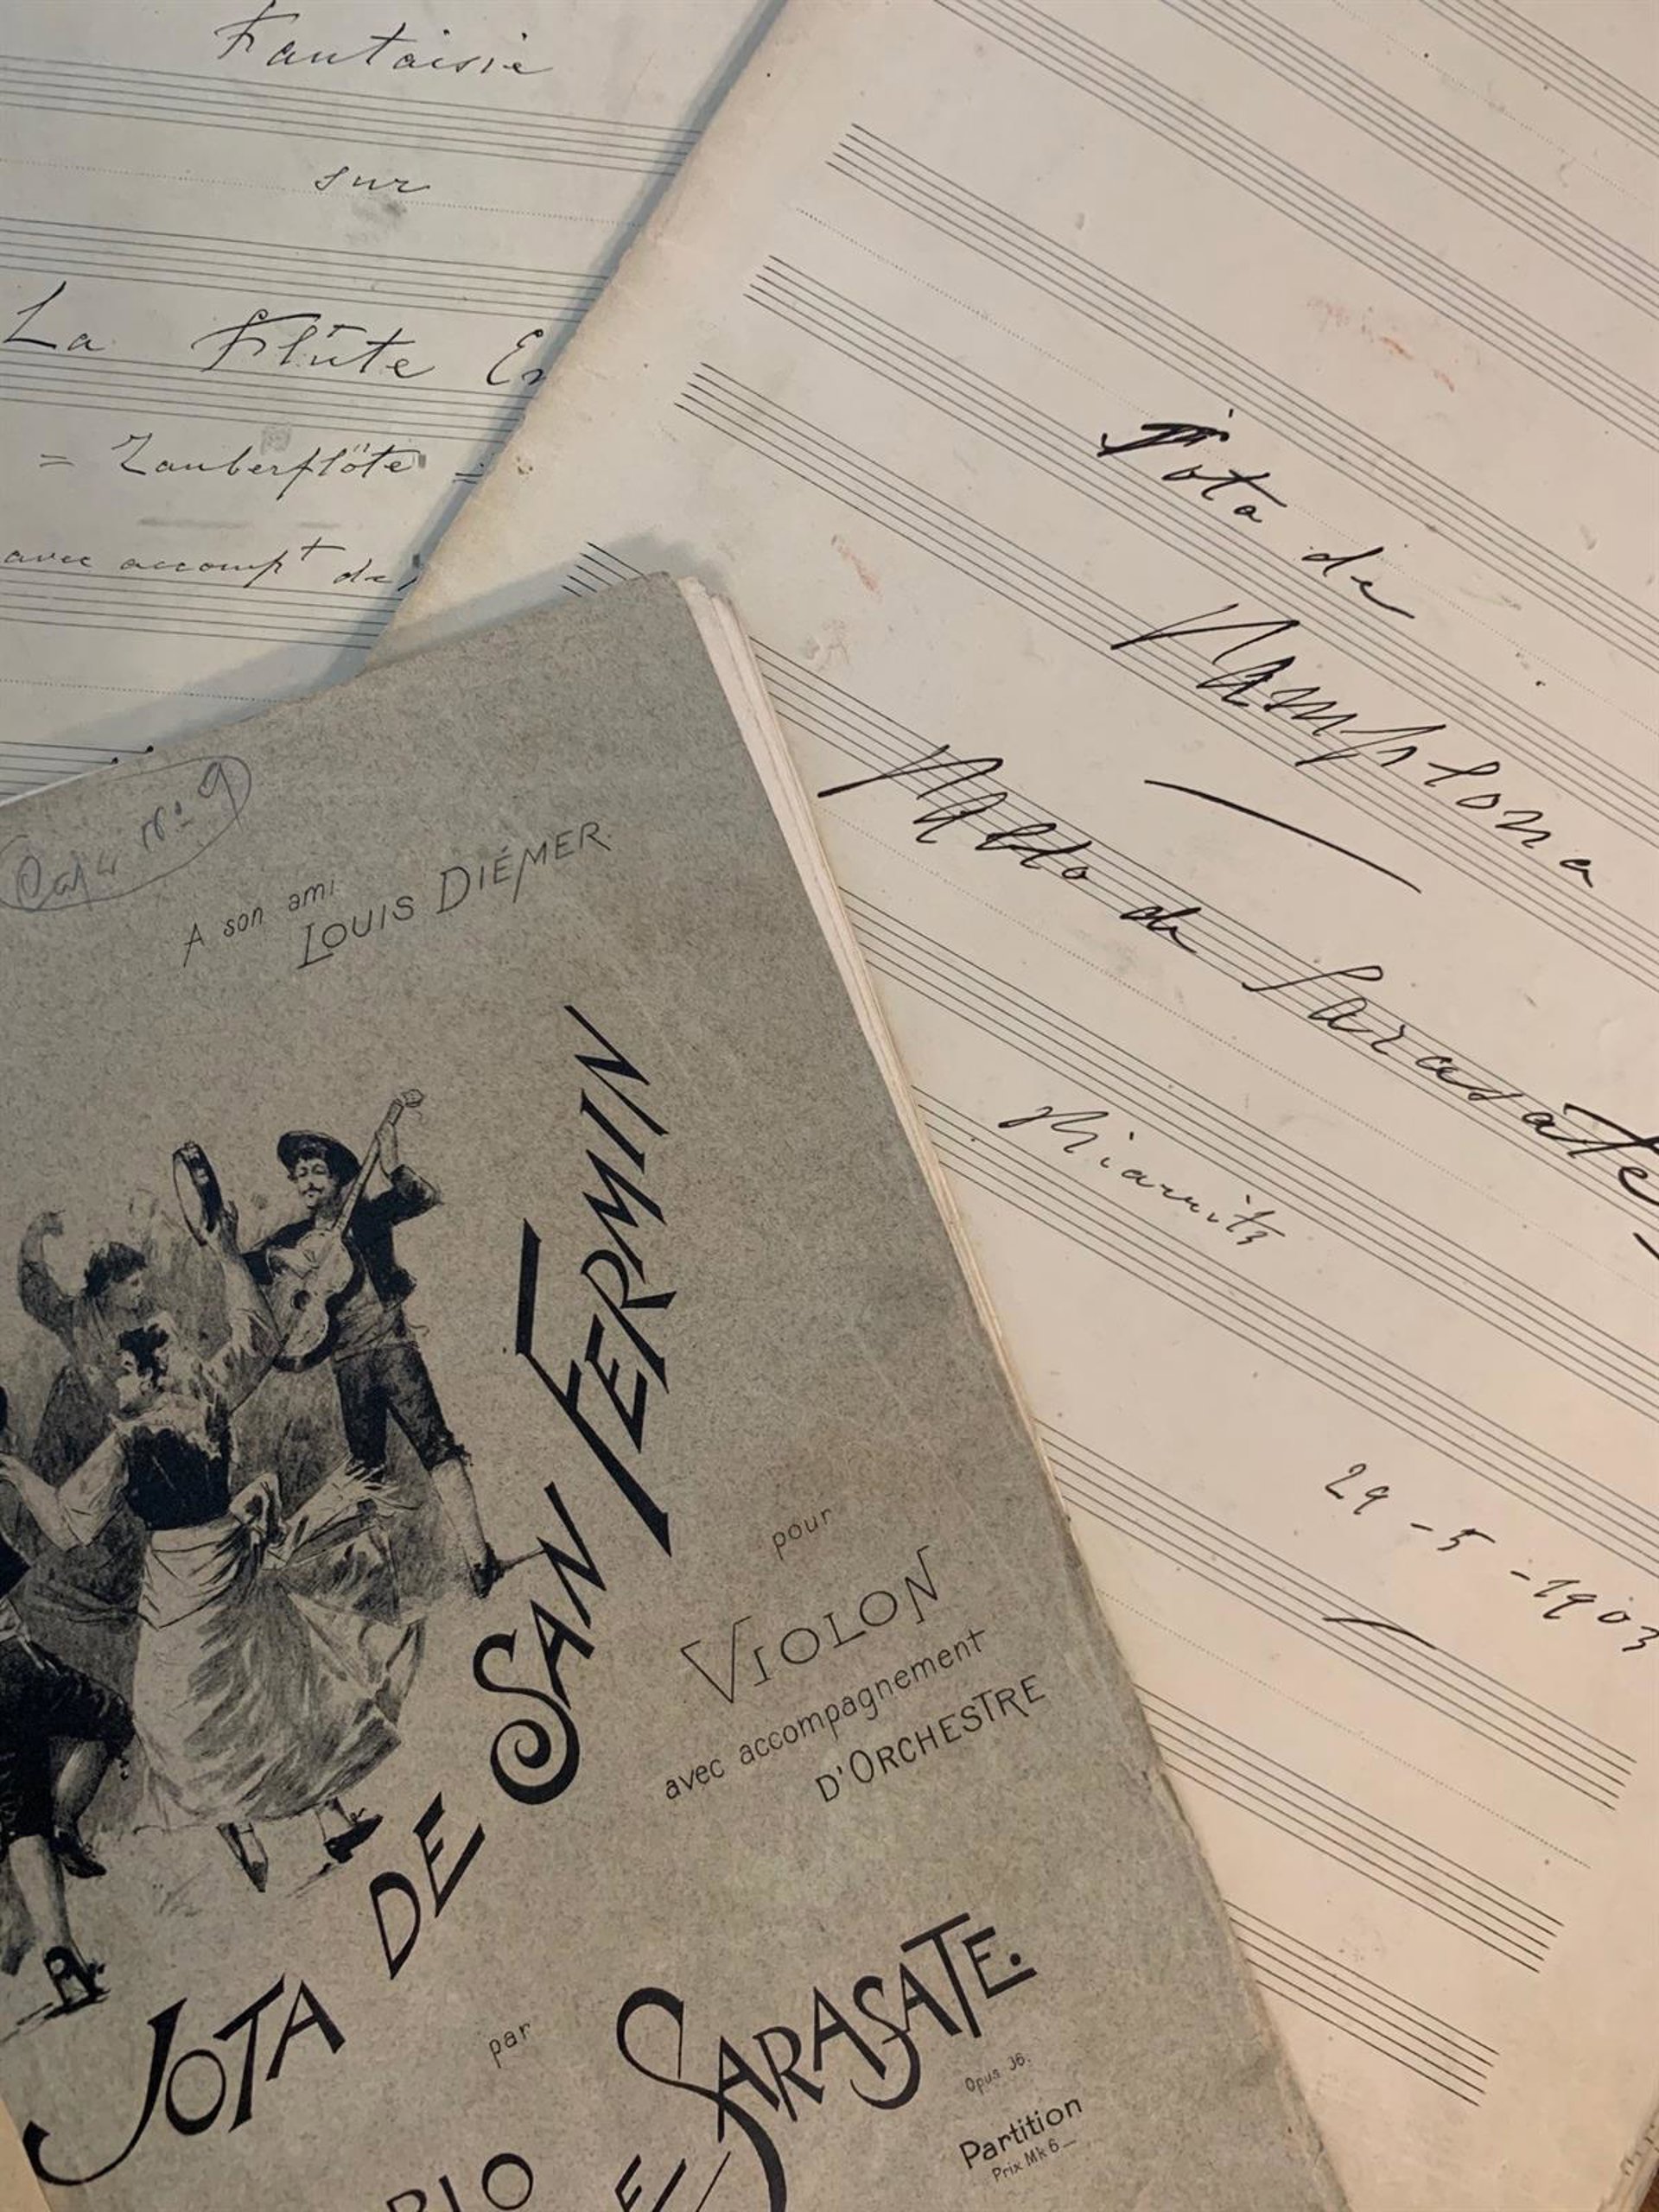 Fantaisie
sur
La Flûte En
= Zauberflöte =
avec accompt de
Jota de
Pamplona
Pablo de Sarasate
Biarritz
29-5-1903
Caja Nº 9
A son ami
LOUIS DIÉMER.
JOTA DE SAN FERMIN
pour
VIOLON
avec accompagnement
D'ORCHESTRE
par
SARASATE.
Opus 36.
Partition
Prix Mk 6_